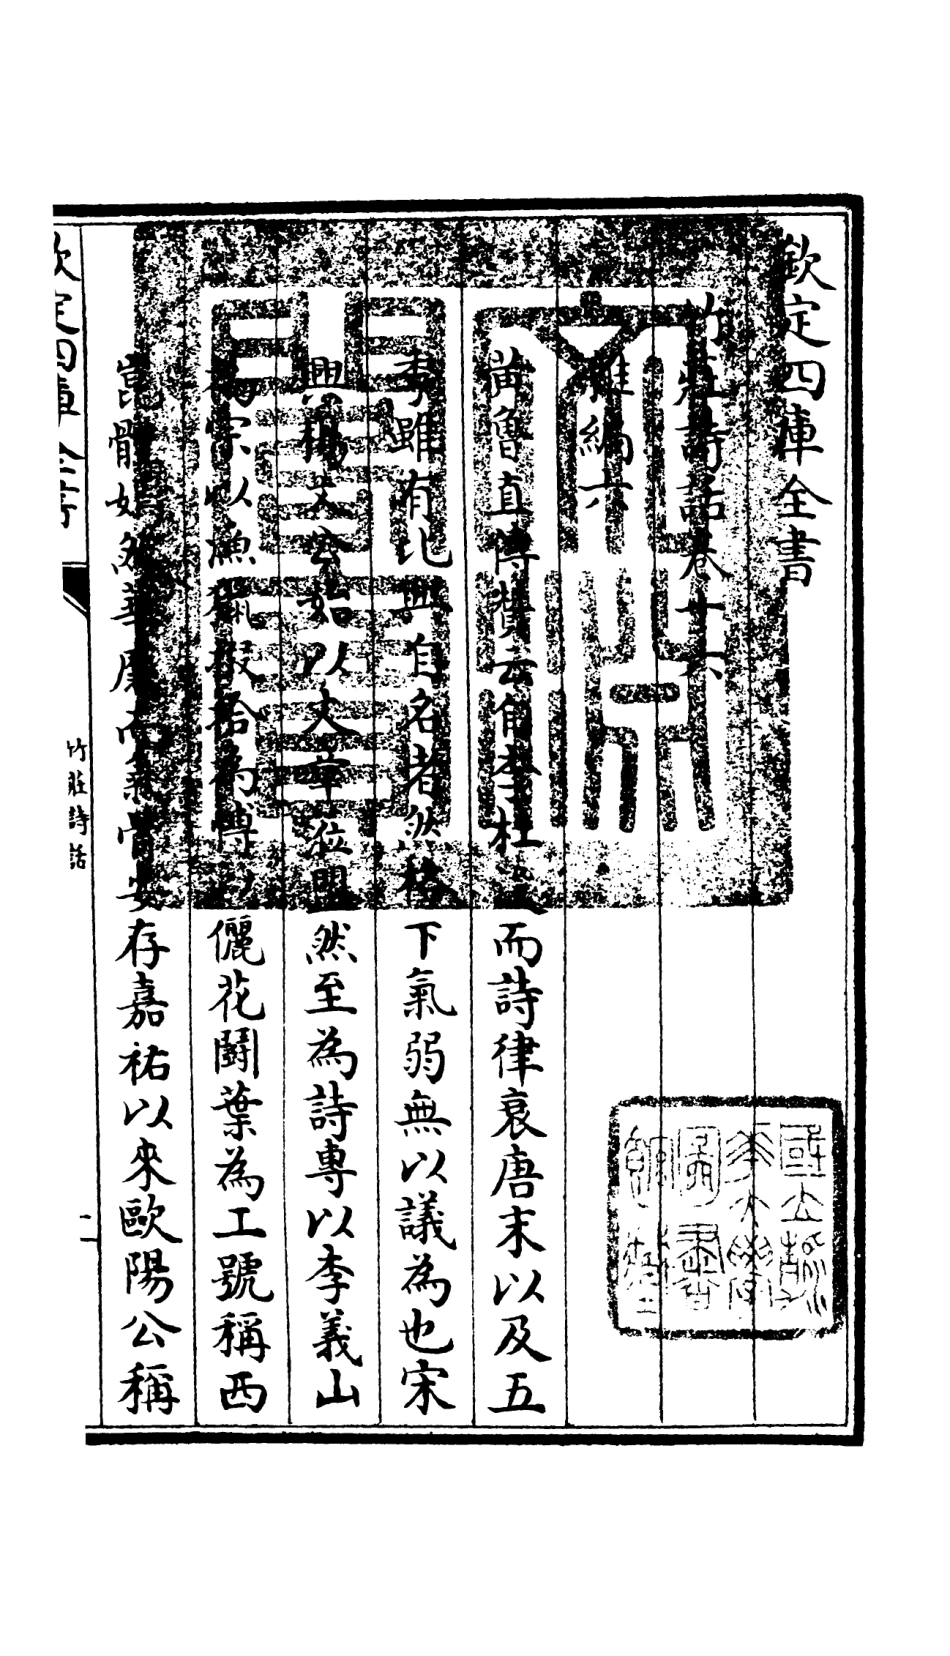 欽定四庫全書
竹莊詩話卷十六
雜編六
黃魯直傳贊云自李杜 而詩律衰唐末以及五
季雖有比興自名者然格下氣弱無以議為也宋
興楊文公始以文章蒞盟然至為詩專以李義山
為宗以漁獵掇拾為博 儷花鬭葉為工號稱西
崑體嫣然華靡而氣骨 存嘉祐以來歐陽公稱
欽定四庫全書
竹莊詩話
一